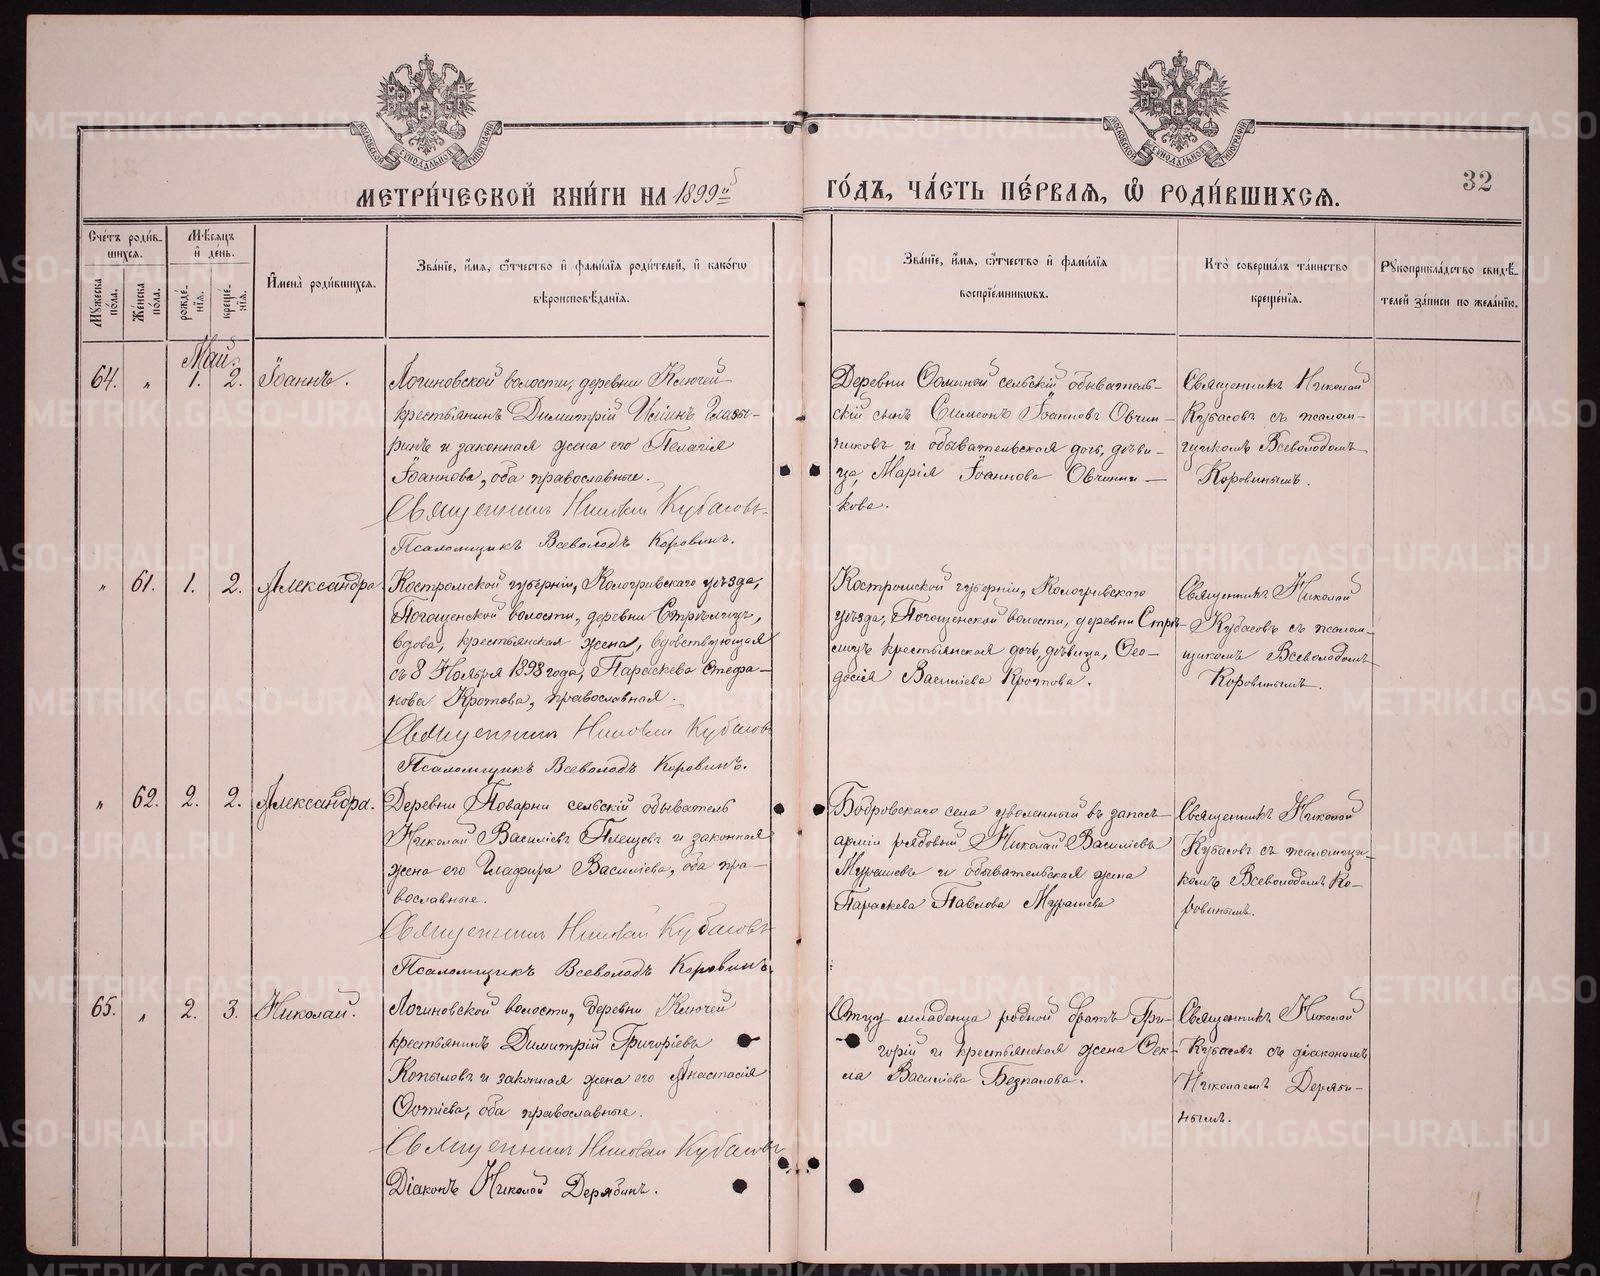 МЕТРИ́ЧЕСКОЙ КНИ́ГИ НА 1899й
ГО́ДЪ, ЧА́СТЬ ПЕ́РВАѦ, Ѡ҆ РОДИ́ВШИХСѦ.
32
Сче́тъ роди́в-
шихсѧ.
Мꙋ́жеска по́ла.
Же́нска по́ла.
Мѣ́сѧцъ
и҆ де́нь.
рожде́-
нїѧ.
креще́-
нїѧ.
И҆мена̀ роди́вшихсѧ.
Зва́нїе, и҆́мѧ, ѻ҆́тчество и҆ фами́лїѧ роди́телей, и҆ како́гѡ
вѣроисповѣ́данїѧ.
Зва́нїе, и҆́мѧ, ѻ҆́тчество и҆ фами́лїѧ
воспрїе́мникѡвъ.
Кто̀ соверша́лъ та́инство
креще́нїѧ.
Рꙋкоприкла́дство свидѣ́-
телей за́писи по жела́нїю.
Май.
64. „ 1. 2. Іоаннъ.
Логиновской волости, деревни Ключей
крестьянинъ Димитрій Исіинъ Глазы-
ринъ и законная жена его Пелагія
Іоаннова, оба православные.
Священникъ Николай Кубасовъ
Псаломщикъ Всеволодъ Коровинъ.
Деревни сельскій обыватель-
скій сынъ Симеонъ Іоанновъ Овчин-
никовъ и обывательская дочь, дѣви-
ца, Марія Іоаннова Овчинни-
кова.
Священникъ Николай
Кубасовъ съ псалом-
щикомъ Всеволодомъ
Коровинымъ.
„ 61. 1. 2. Александра.
Костромской губерніи, Кологривскаго уѣзда,
волости, деревни Стрѣлицъ,
вдова, крестьянская жена, вдовствующая
съ 8 Ноября 1898 года, Параскева Стефа-
нова Кротова, православная.
Священникъ Николай Кубасовъ
Псаломщикъ Всеволодъ Коровинъ.
Костромской губерніи, Кологривскаго
уѣзда, волости, деревни Стрѣ-
лицъ крестьянская дочь, дѣвица, Ѳео-
досія Василіева Кротова.
Священникъ Николай
Кубасовъ съ псалом-
щикомъ Всеволодомъ
Коровинымъ.
„ 62. 2. 2. Александра.
Деревни Поварни сельскій обыватель
Николай Василіевъ Плещевъ и законная
жена его Глафира Василіева, оба пра-
вославные.
Священникъ Николай Кубасовъ
Псаломщикъ Всеволодъ Коровинъ.
Бобровскаго села уволенный въ запасъ
арміи рядовый Николай Василіевъ
Мурашевъ и обывательская жена
Параскева Павлова Мурашева
Священникъ Николай
Кубасовъ съ псаломщи-
комъ Всеволодомъ Ко-
ровинымъ.
65. „ 2. 3. Николай.
Логиновской волости, деревни Ключей
крестьянинъ Димитрій Григоріевъ
Копыловъ и законная жена его Анастасія
Фотіева, оба православные.
Священникъ Николай Кубасовъ
Діаконъ Николай Дерябинъ.
Отцу младенца родной братъ Гри-
горій и крестьянская жена Ѳек-
ла Василіева Безпалова.
Священникъ Николай
Кубасовъ съ діакономъ
Николаемъ Деряби-
нымъ.